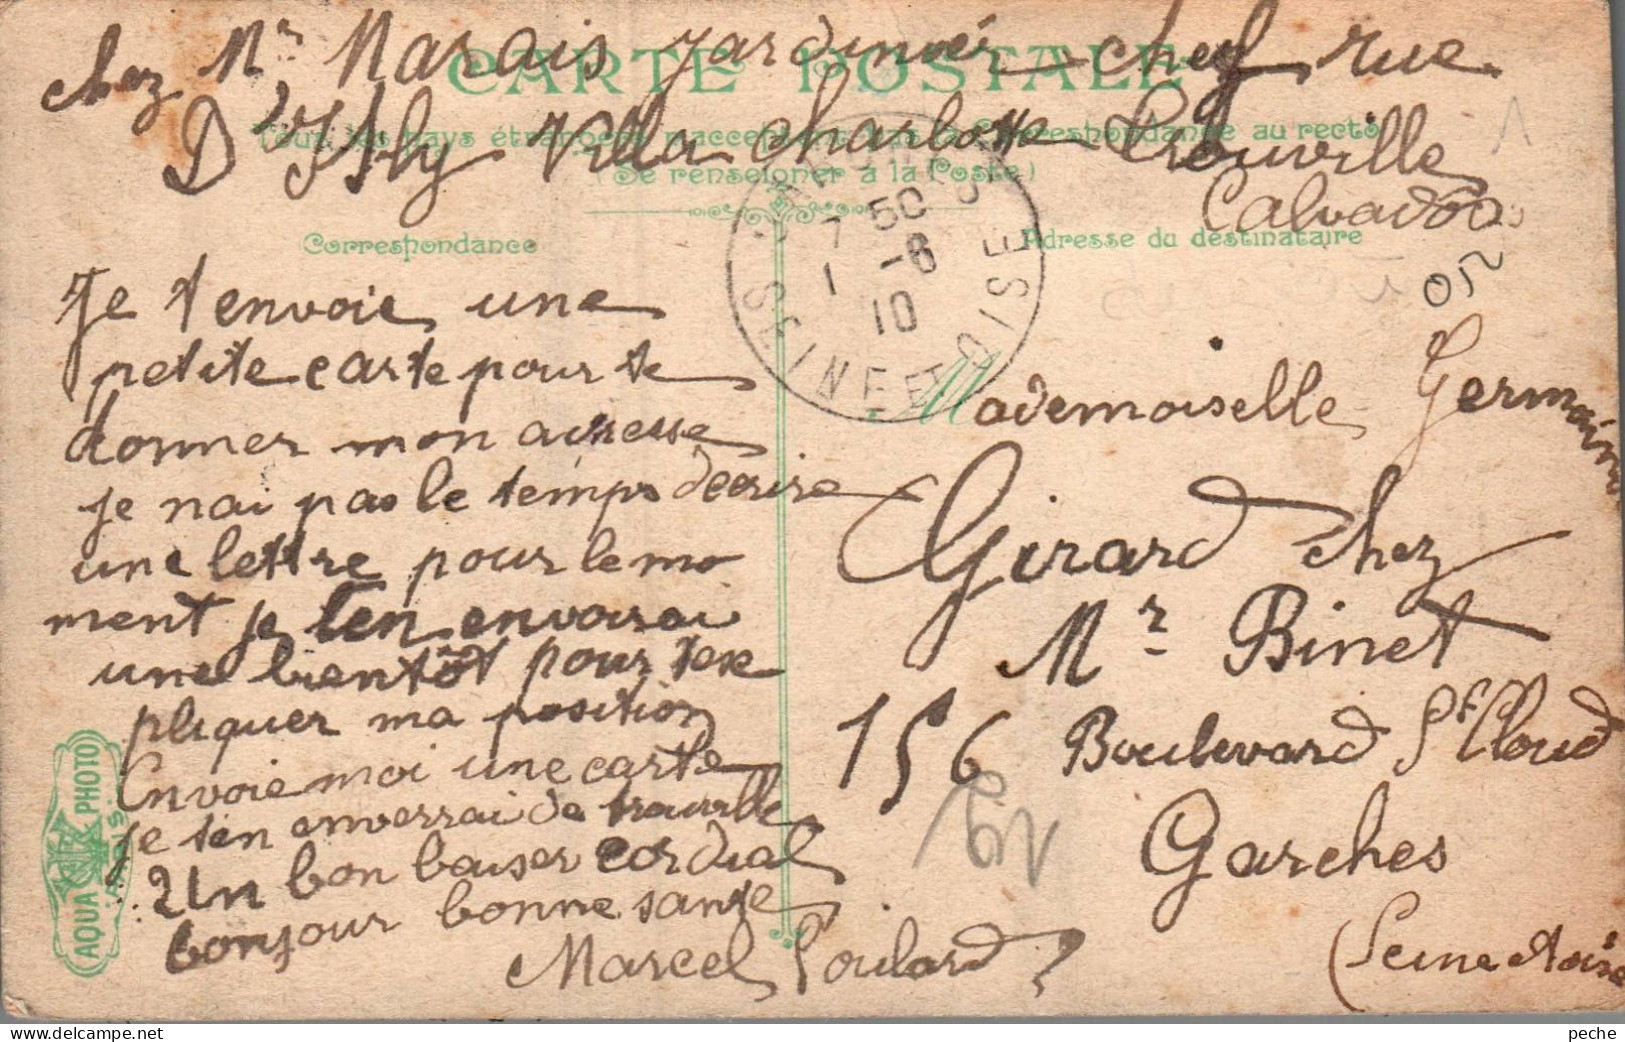 chez Mr Marais jardinier chef rue
D'Isly Villa Charlotte Trouville
Calvados
CARTE POSTALE
Tous les pays étrangers n'acceptent pas la Correspondance au recto
(Se renseigner à la Poste)
Correspondance
Adresse du destinataire
7 50
1 -8
10
SEINE ET OISE
Je t envoie une
petite carte pour te
donner mon adresse
je nai pas le temps décrire
une lettre pour le mo
ment je ten envoirai
une bientôt pour tex
pliquer ma position
Envoie moi une carte
je ten enverrai de trouville
Un bon baiser cordial
bonjour bonne sante
Marcel Poulard
Mademoiselle Germaine
Girard chez
Mr Binet
156 Boulevard St Cloud
Garches
(Seine et Oise
AQUA PHOTO
PARIS
peche